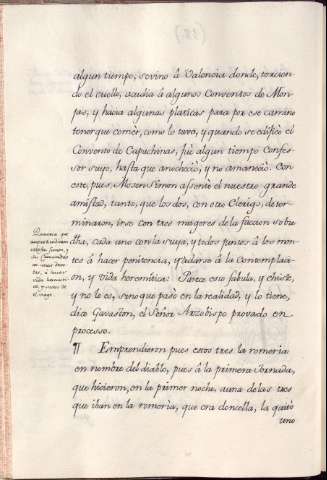 (38.)
algun tiempo, se vino â Valencia donde, torcien-
do el cuello, acudia â algunos Conventos de Mon-
jas, y hacia algunas platicas para por ese camino
tener que comèr, como lo tuvo, y quando se edificò el
Convento de Capuchinas, fuè algun tiempo Confes-
sor suyo, hasta que anocheciò, y no amaneciò. Con
este, pues, Mosen Simon assentò el nuestro grande
amistad, tanto, que los dos, con otro Clerigo, deter-
minaron, irse con tres mugeres de la faccion sobre
dha, cada uno con la suya, y todos juntos â los mon-
tes â hacer penitencia, y â darse â la Contemplaci-
on, y vida heremitica: Parece esto fabula, y chiste,
y no lo es, sino que pasò en la realidad, y lo tiene,
dice Gavaston, el Señor Arzobispo provado en
processo.
¶ Emprendieron pues estos tres la romeria
en nombre del diablo, pues â la primera Jornada,
que hicieron, en la primer noche, a una de las tres
que iban en la romeria, que era doncella, la quitò
uno